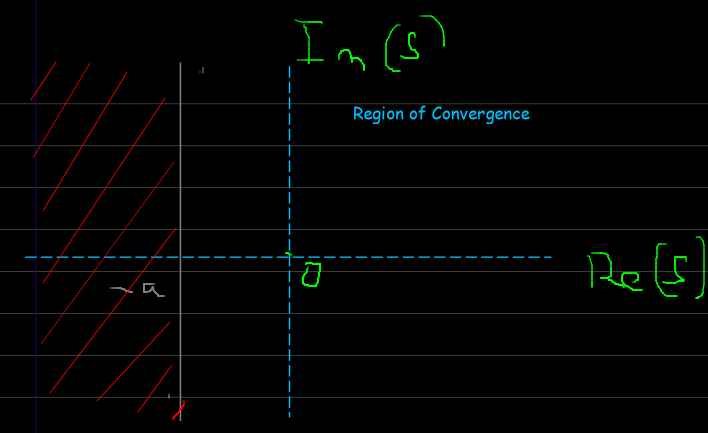 Im(s)
Region of Convergence
0
Re(s)
-a